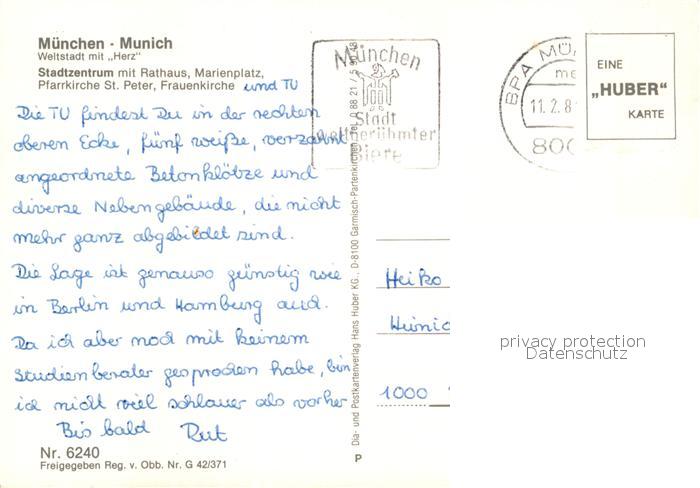 München · Munich
Weltstadt mit „Herz"
Stadtzentrum mit Rathaus, Marienplatz,
Pfarrkirche St. Peter, Frauenkirche und TU
Die TU findest Du in der rechten
oberen Ecke, fünf weiße, verzahnt
angeordnete Betonklötze und
diverse Nebengebäude, die nicht
mehr ganz abgebildet sind.
Die Lage ist genauso günstig wie
in Berlin und Hamburg auch.
Da ich aber noch mit keinem
Studienberater gesprochen habe, bin
ich nicht viel schlauer als vorher
Bis bald Rut
Nr. 6240
Freigegeben Reg. v. Obb. Nr. G 42/371
Dia- und Postkartenverlag Hans Huber KG., D-8100 Garmisch-Partenkirchen, Tel. 0 88 21 /
P
München
Stadt
weltberühmter
Biere
BPA MÜ
me
11.2.8
800
EINE
„HUBER"
KARTE
Heiko
1000
privacy protection
Datenschutz